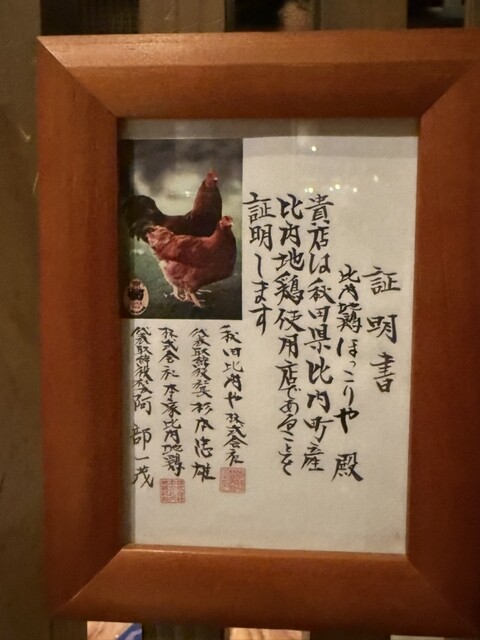 証明書
比内地鶏ほっこりや 殿
貴店は秋田県比内町産
比内地鶏使用店であることを
証明します
秋田比内や株式会社
代表取締役社長 杉本忠雄
株式会社本家比内地鶏
代表取締役社長 阿部一茂